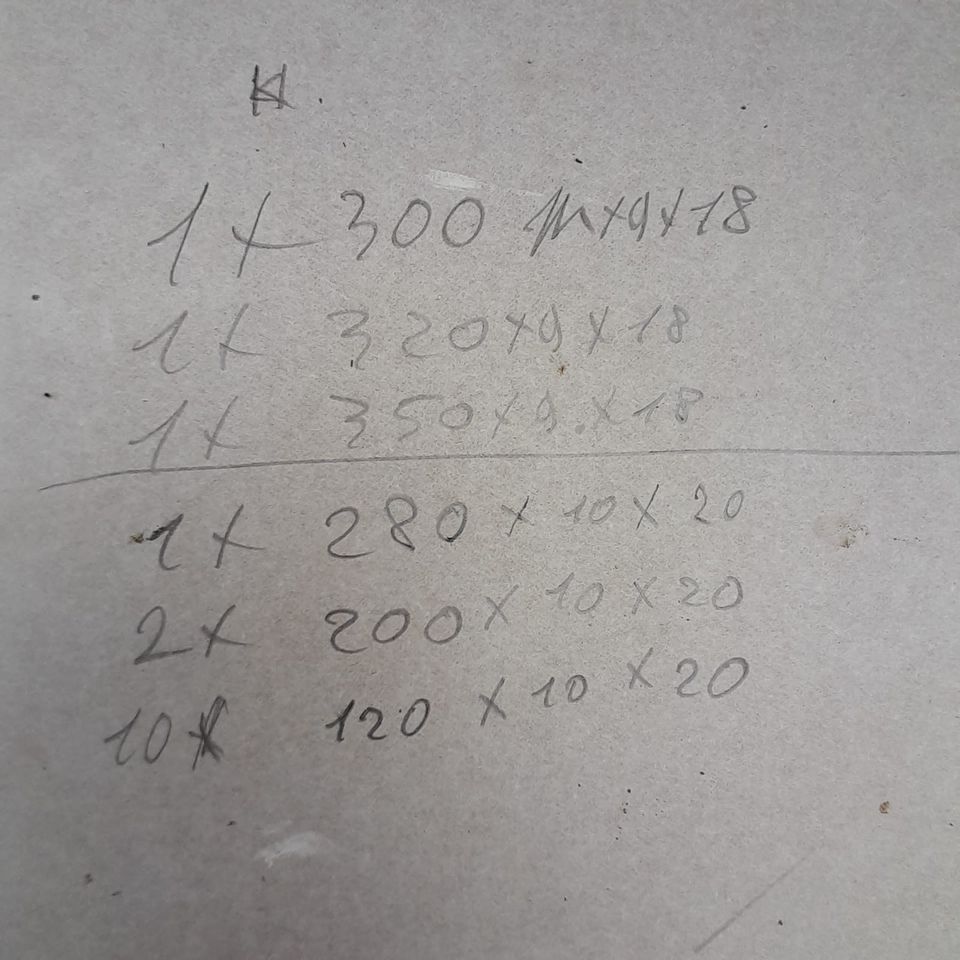 1x 300 x9x18
1x 320x9x18
1x 350x9x18
1x 280x10x20
2x 200x10x20
10x 120x10x20